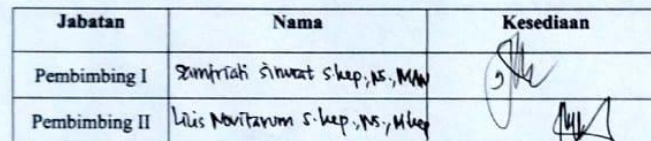 Jabatan Nama Kesediaan
Pembimbing I Samfriati Sinurat S.kep., NS., MAN
Pembimbing II Lilis Novitarum S.kep., NS., M.kep